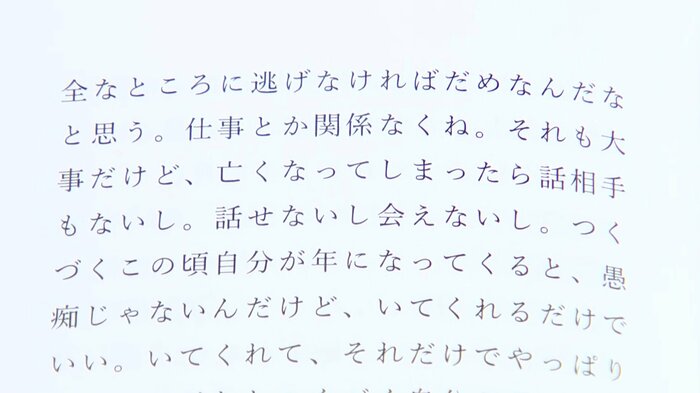 全なところに逃げなければだめなんだな
と思う。仕事とか関係なくね。それも大
事だけど、亡くなってしまったら話相手
もないし。話せないし会えないし。つく
づくこの頃自分が年になってくると、愚
痴じゃないんだけど、いてくれるだけで
いい。いてくれて、それだけでやっぱり